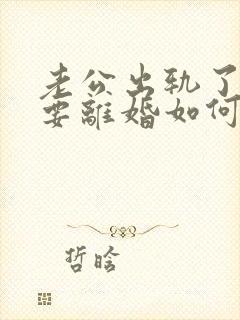 老公出轨了
要離婚如何
哲晗